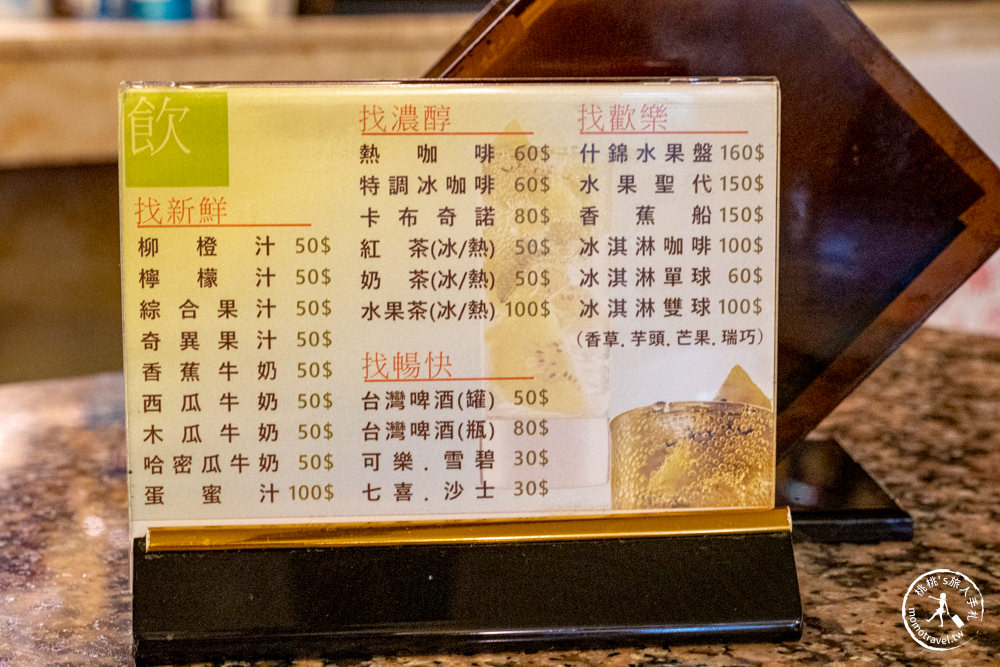 飲
找新鮮
柳橙汁 50$
檸檬汁 50$
綜合果汁 50$
奇異果汁 50$
香蕉牛奶 50$
西瓜牛奶 50$
木瓜牛奶 50$
哈密瓜牛奶 50$
蛋蜜汁 100$
找濃醇
熱咖啡 60$
特調冰咖啡 60$
卡布奇諾 80$
紅茶(冰/熱) 50$
奶茶(冰/熱) 50$
水果茶(冰/熱) 100$
找暢快
台灣啤酒(罐) 50$
台灣啤酒(瓶) 80$
可樂.雪碧 30$
七喜.沙士 30$
找歡樂
什錦水果盤 160$
水果聖代 150$
香蕉船 150$
冰淇淋咖啡 100$
冰淇淋單球 60$
冰淇淋雙球 100$
(香草.芋頭.芒果.瑞巧)
桃桃's旅人手札
momotravel.tw